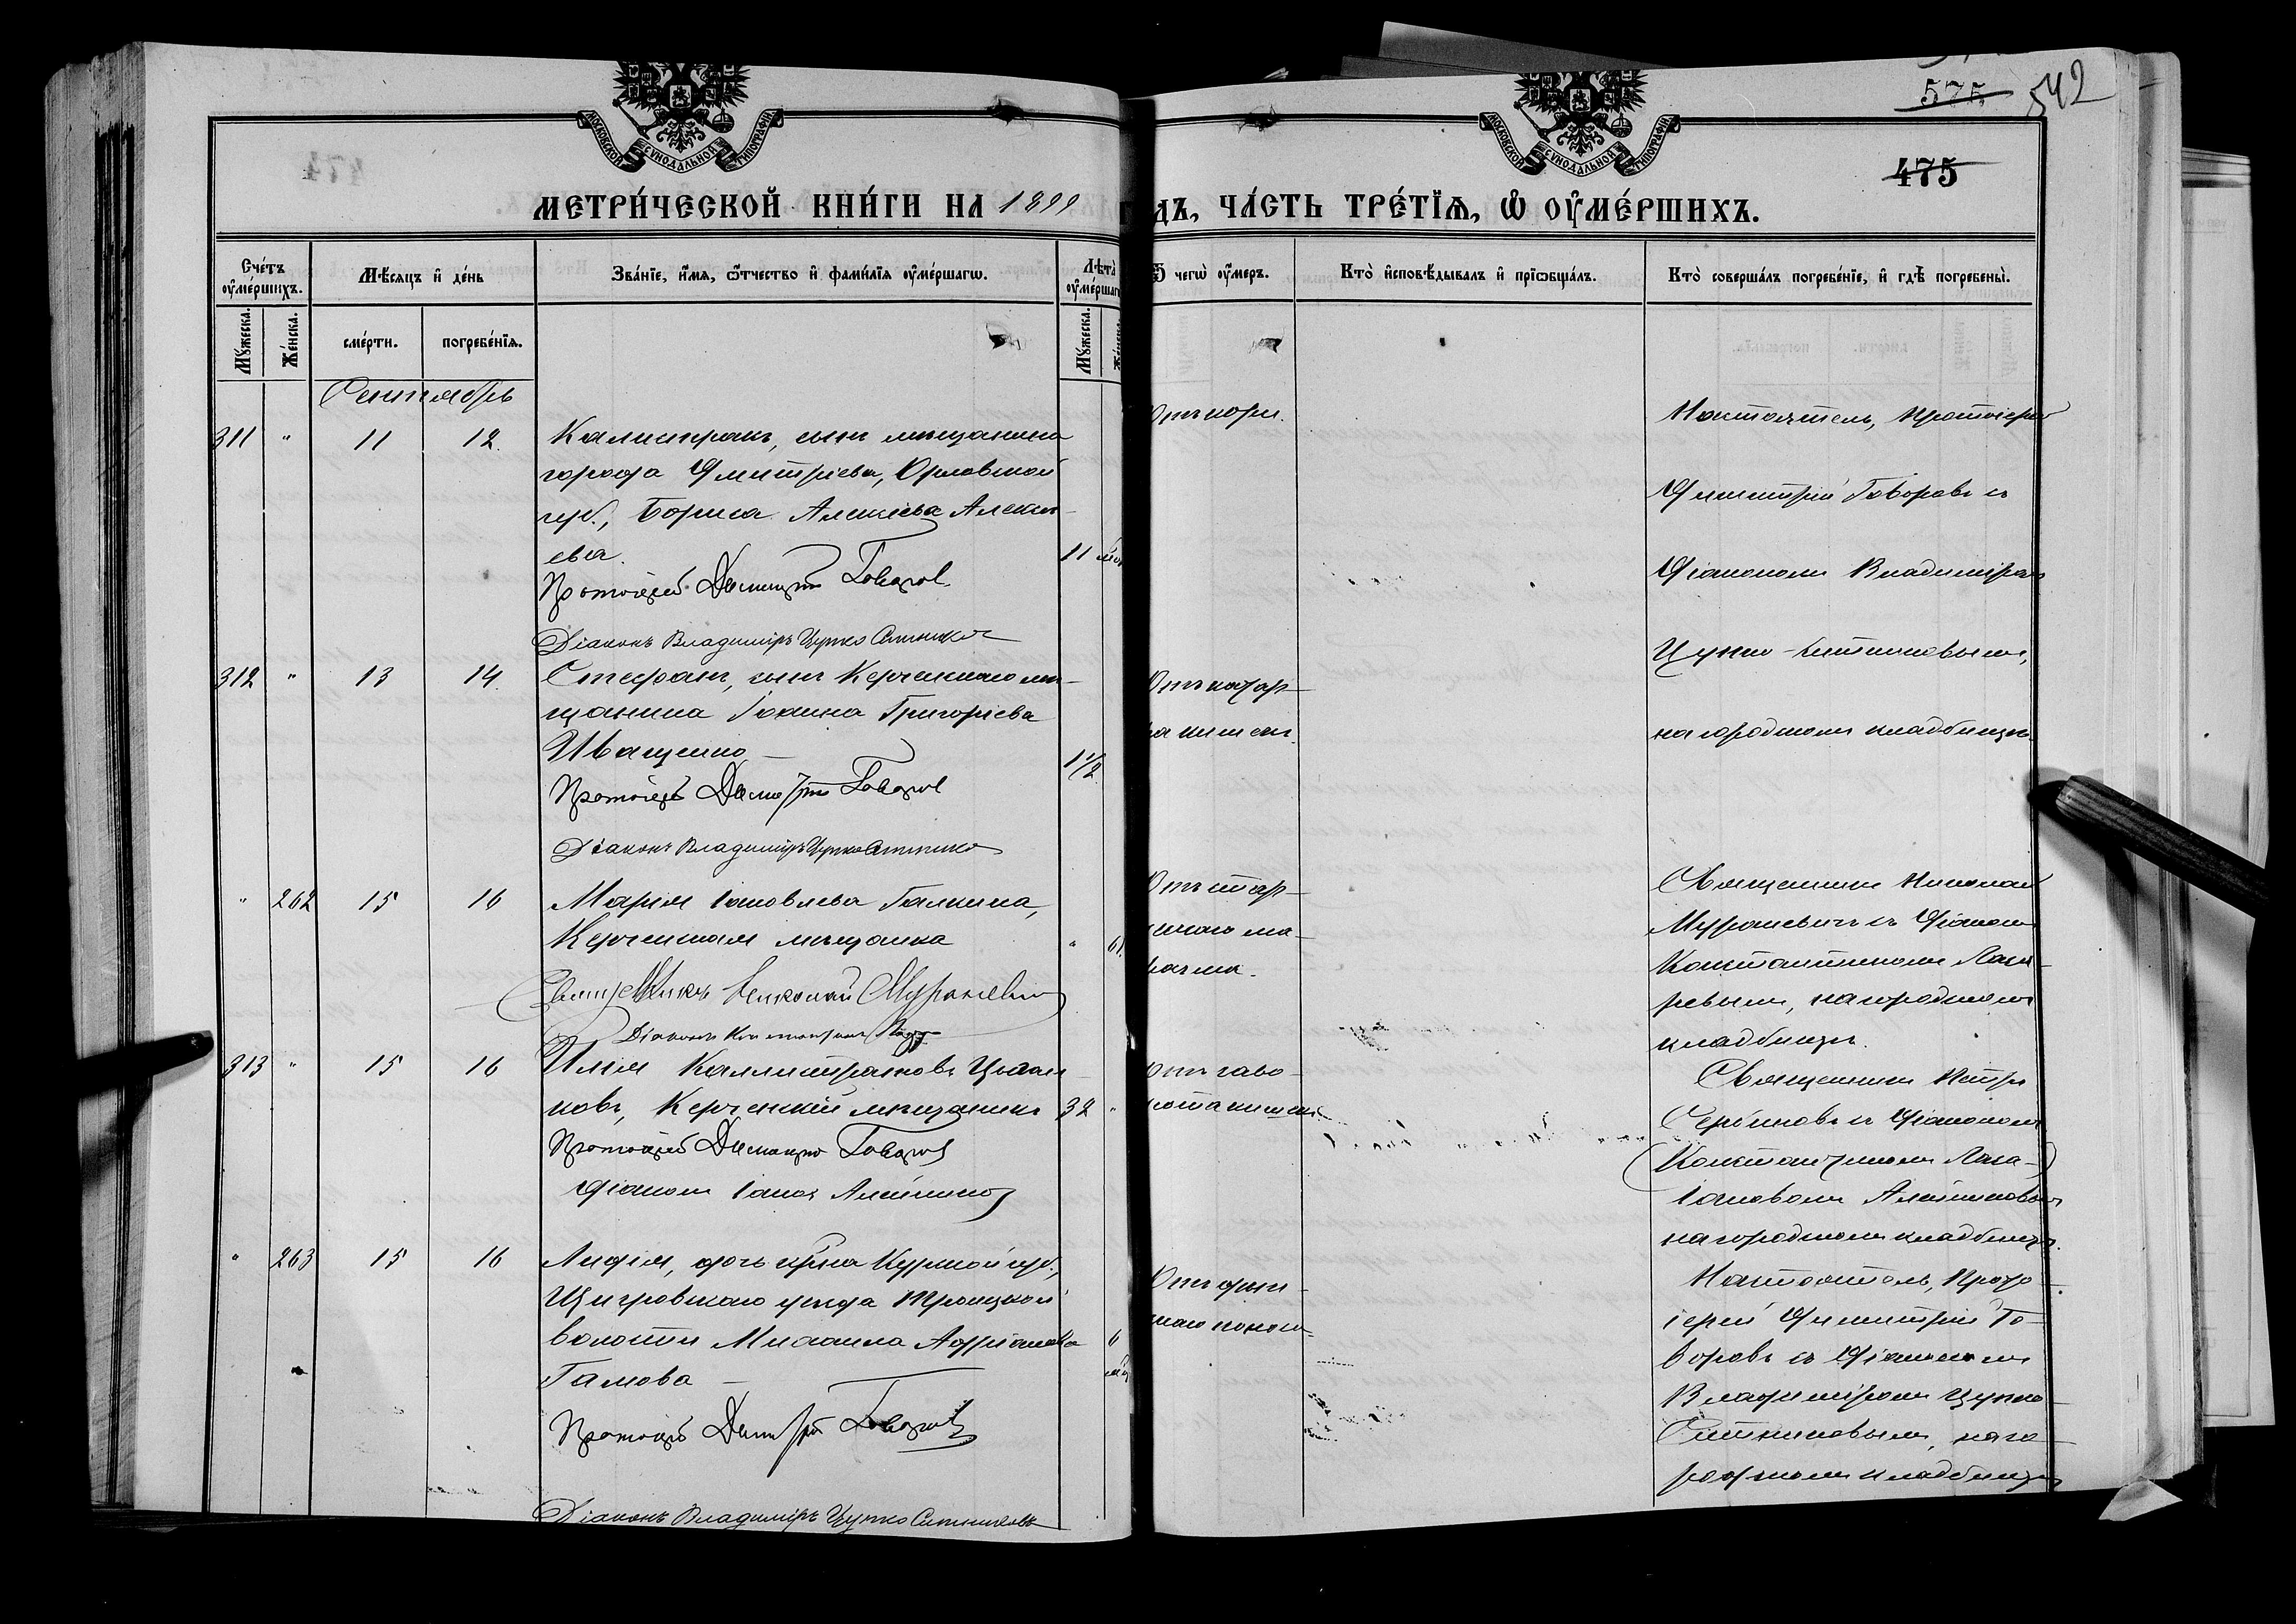 575 542
475
МОСКОВСКОЙ СѴНОДАЛЬНОЙ ТИПОГРАФІИ
МОСКОВСКОЙ СѴНОДАЛЬНОЙ ТИПОГРАФІИ
МЕТРИ́ЧЕСКОЙ КНИ́ГИ НА 1899
ДЪ, ЧА́СТЬ ТРЕ́ТЇѦ, Ѽ ОУ҆МЕ́РШИХЪ.
Сче́тъ оу҆ме́ршихъ.
Мѣ́сяцъ и҆ де́нь
Зва́нїе, и҆́мѧ, ѻ҆́тчество и҆ фами́лїѧ оу҆ме́ршагѡ.
Лѣ́та оу҆ме́ршаг
Ѿ чегѡ̀ оу҆́меръ.
Кто̀ и҆сповѣ́дывалъ и҆ прїѡбща́лъ.
Кто̀ соверша́лъ погребе́нїе, и҆ гдѣ̀ погребены̀.
Мꙋ́жеска.
Же́нска.
сме́рти.
погребе́нїѧ.
Мꙋ́жеска.
Сентябрь
311 " 11 12.
Калистратъ, сынъ мѣщанина
города Дмитріева, Орловской
губ., Бориса Алексѣева Алексѣ-
ева. 11 мѣс
Протоіерей Димитрій Говоровъ
Діаконъ Владиміръ Цупко Ситников
Отъ кори.
Настоятель, Протоіерей
Димитрій Говоровъ съ
Діакономъ Владиміромъ
Цупко-Ситниковымъ,
на городскомъ кладбищѣ.
312 " 13 14.
Стефанъ, сынъ Керченскаго мѣ-
щанина Іоанна Григоріева
Иващенко 1 1/2
Протоіерей Димитрій Говоров
Діаконъ Владиміръ Цупко Ситников
Отъ катар-
ра кишекъ.
" 262 15 16
Марія Іаковлева Галкина,
Керченская мѣщанка " 61.
Священникъ Николай Мураневич
Діаконъ Константинъ Лаза
Отъ стар-
ческаго ма-
разма.
Священникъ Николай
Мураневичъ съ Діакономъ
Константиномъ Лаза-
ревымъ, на городскомъ
кладбищѣ.
313 " 15 16
Илія Каллистратовъ
ковъ, Керченскій мѣщанинъ 32 "
Протоіерей Димитрій Говоров
Діаконъ Іаковъ Алейников
Священникъ Петръ
Сербиновъ съ Діакономъ
(Константиномъ Лаза-)
Іаковомъ Алейниковымъ
на городскомъ кладбищѣ.
" 263 15 16
Лидія, дочь кр-на Курской губ.,
Щигровскаго уѣзда Троицкой
волости Михаила Адріанова
Гамова 6 мѣ
Протоіерей Димитрій Говоровъ
Діаконъ Владиміръ Цупко Ситниковъ
Настоятель, Прото-
іерей Димитрій Го-
воровъ съ Діакономъ
Владиміромъ Цупко-
Ситниковымъ, на го-
родскомъ кладбищѣ